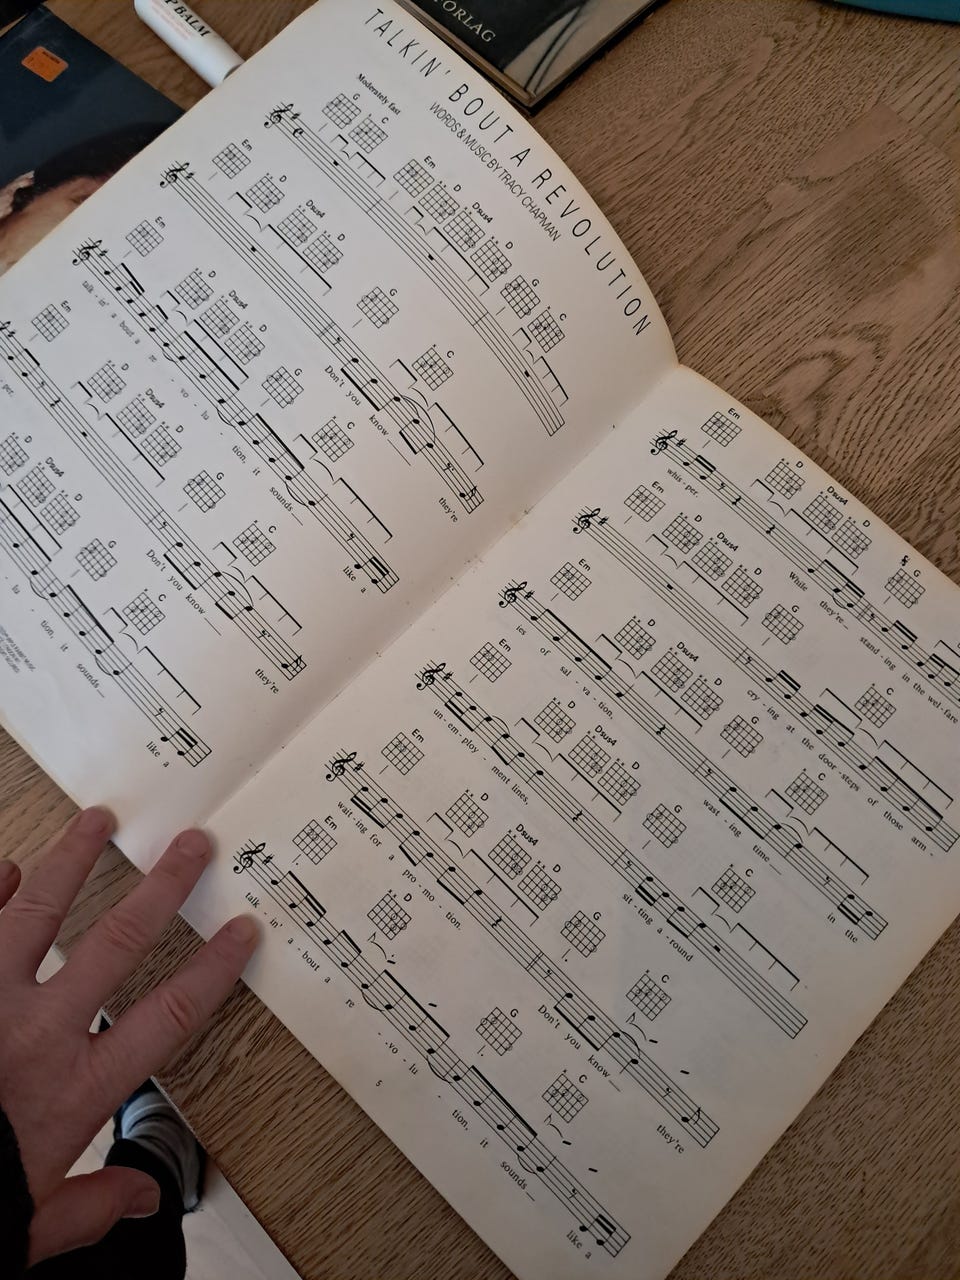 P BALM
FORLAG
TALKIN' BOUT A REVOLUTION
WORDS & MUSIC BY TRACY CHAPMAN
Moderately fast
G C Em D Dsus4 D G C
Em D Dsus4 D G C
Don't you know they're
Em D Dsus4 D G C
talk - in' a bout a re - vo - lu - tion, it sounds like a
Em D Dsus4 D G C
- per. Don't you know they're
D Dsus4 D G C
lu - tion, it sounds like a
Em D Dsus4 D G
whis - per. While they're stand - ing in the wel - fare
Em D Dsus4 D G C
cry - ing at the door - steps of those arm -
Em D Dsus4 D G C
ies of sal - va - tion, wast - ing time in the
Em D Dsus4 D G C
un - em - ploy - ment lines, sit - ting a - round
Em D Dsus4 D G C
wait - ing for a pro - mo - tion. Don't you know they're
Em D G C
talk - in' a - bout a re - vo - lu - tion, it sounds like a
5